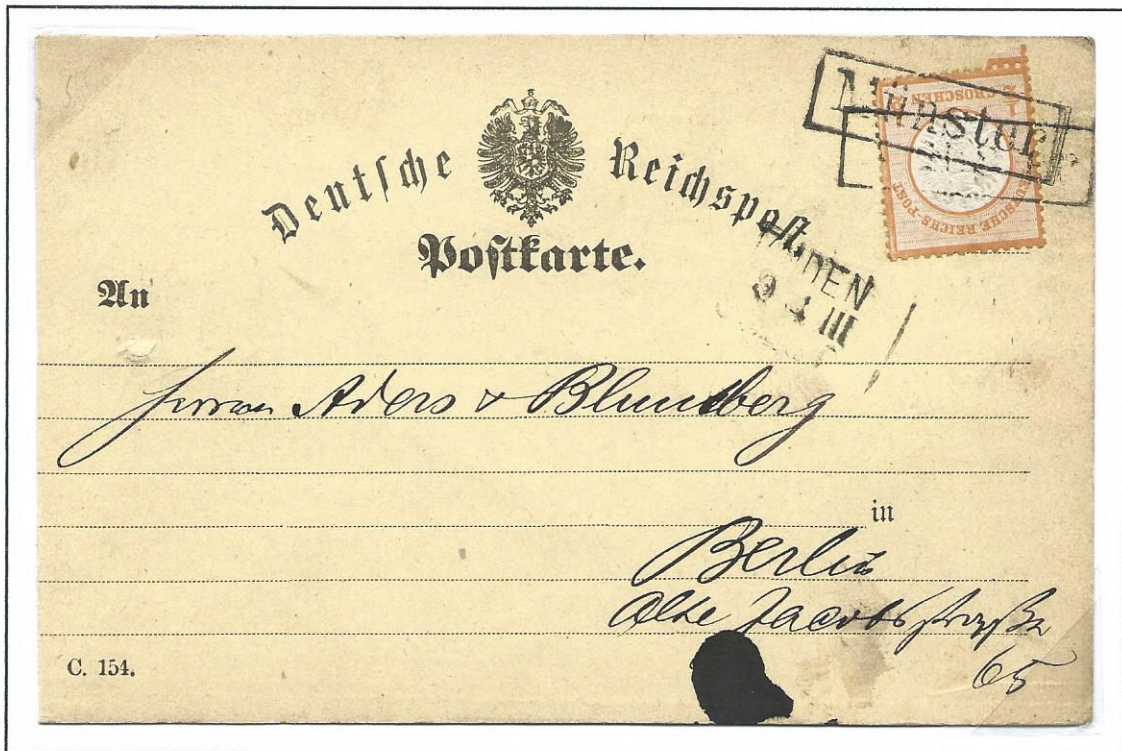 Deutſche Reichspoſt.
Poſtkarte.
Münster
GROSCHEN
DEUTSCHE REICHS-POST
MINDEN
9 4 III
An
Herren Aders & Blumberg
in
Berlin
Alte Jacobsſtraße
65
C. 154.